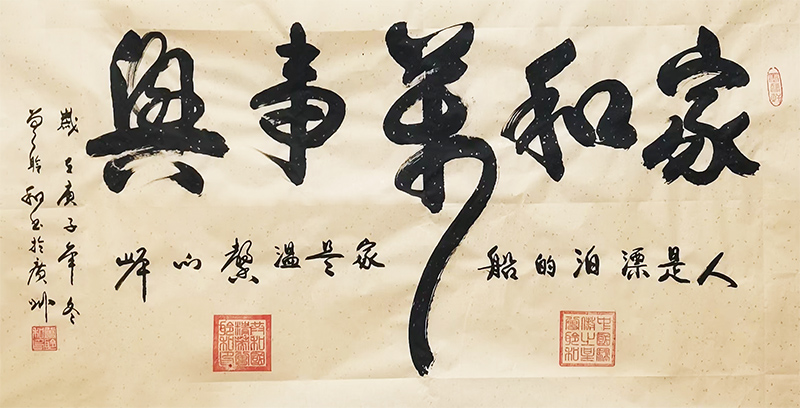 家和萬事興
人是漂泊的船
家是溫馨的岸
歲在庚子年冬
和書於廣州